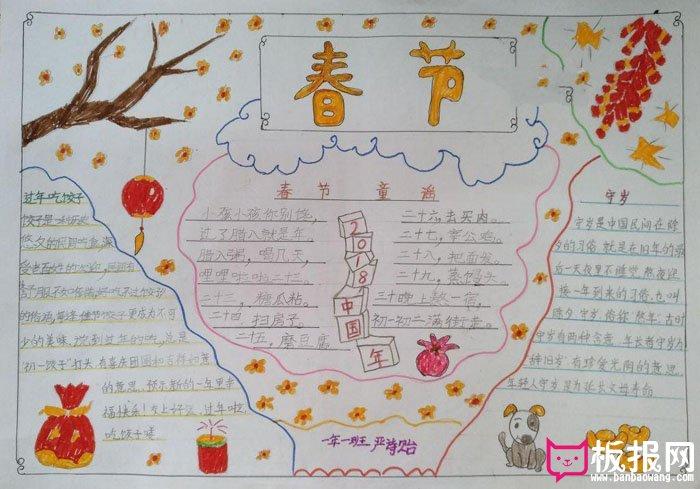 春节
春节童谣
小孩小孩你别馋,
过了腊八就是年。
腊八粥,喝几天,
哩哩啦啦二十三。
二十三,糖瓜粘。
二十四扫房子。
二十五,磨豆腐
二十六,去买肉。
二十七,宰公鸡。
二十八,把面发。
二十九,蒸馒头。
三十晚上熬一宿,
初一初二满街走。
2018中国年
过年吃饺子
饺子是
悠久的民间吃食,深
受老百姓的欢迎,民间有
好吃不过饺子
的俗语,每逢佳节饺子更成为不可
少的美味
初一饺子
的意思,预示新的一年里幸
福快乐!
吃饺子喽
守岁
守岁是中国民间在除
夕的习俗,就是在旧年的最
后一天夜里不睡觉,熬夜迎
接新一年到来的习俗,也叫
除夕守岁,俗称“熬年”。古时
守岁有两种含意:年长者守岁为
“辞旧岁”有珍爱光阴的意思,
年轻人守岁是为延长父母寿命
一年一班 严诗贻
板报网
www.banbaowang.com